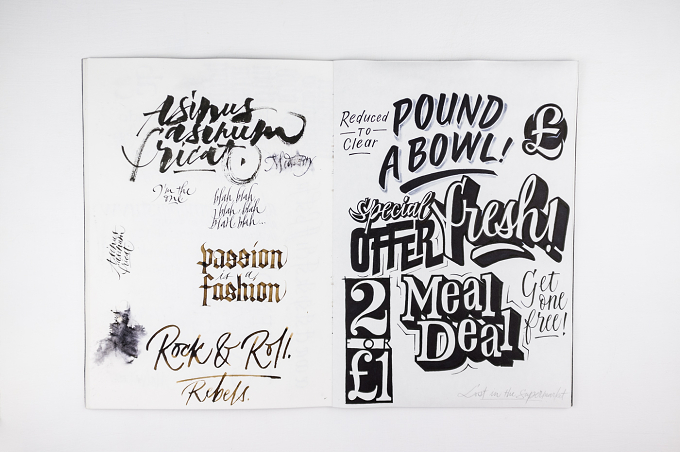 Asinus
asinum
fricat
I'm the
one
blah, blah
blah blah
blah blah...
Asinus
asinum
fricat
passion
is a
fashion
Rock & Roll.
Rebels.
Reduced
TO
Clear
POUND
A BOWL!
£
special
OFFER
fresh!
2
FOR
£1
Meal
Deal
Get
one
free!
Lost in the supermarket